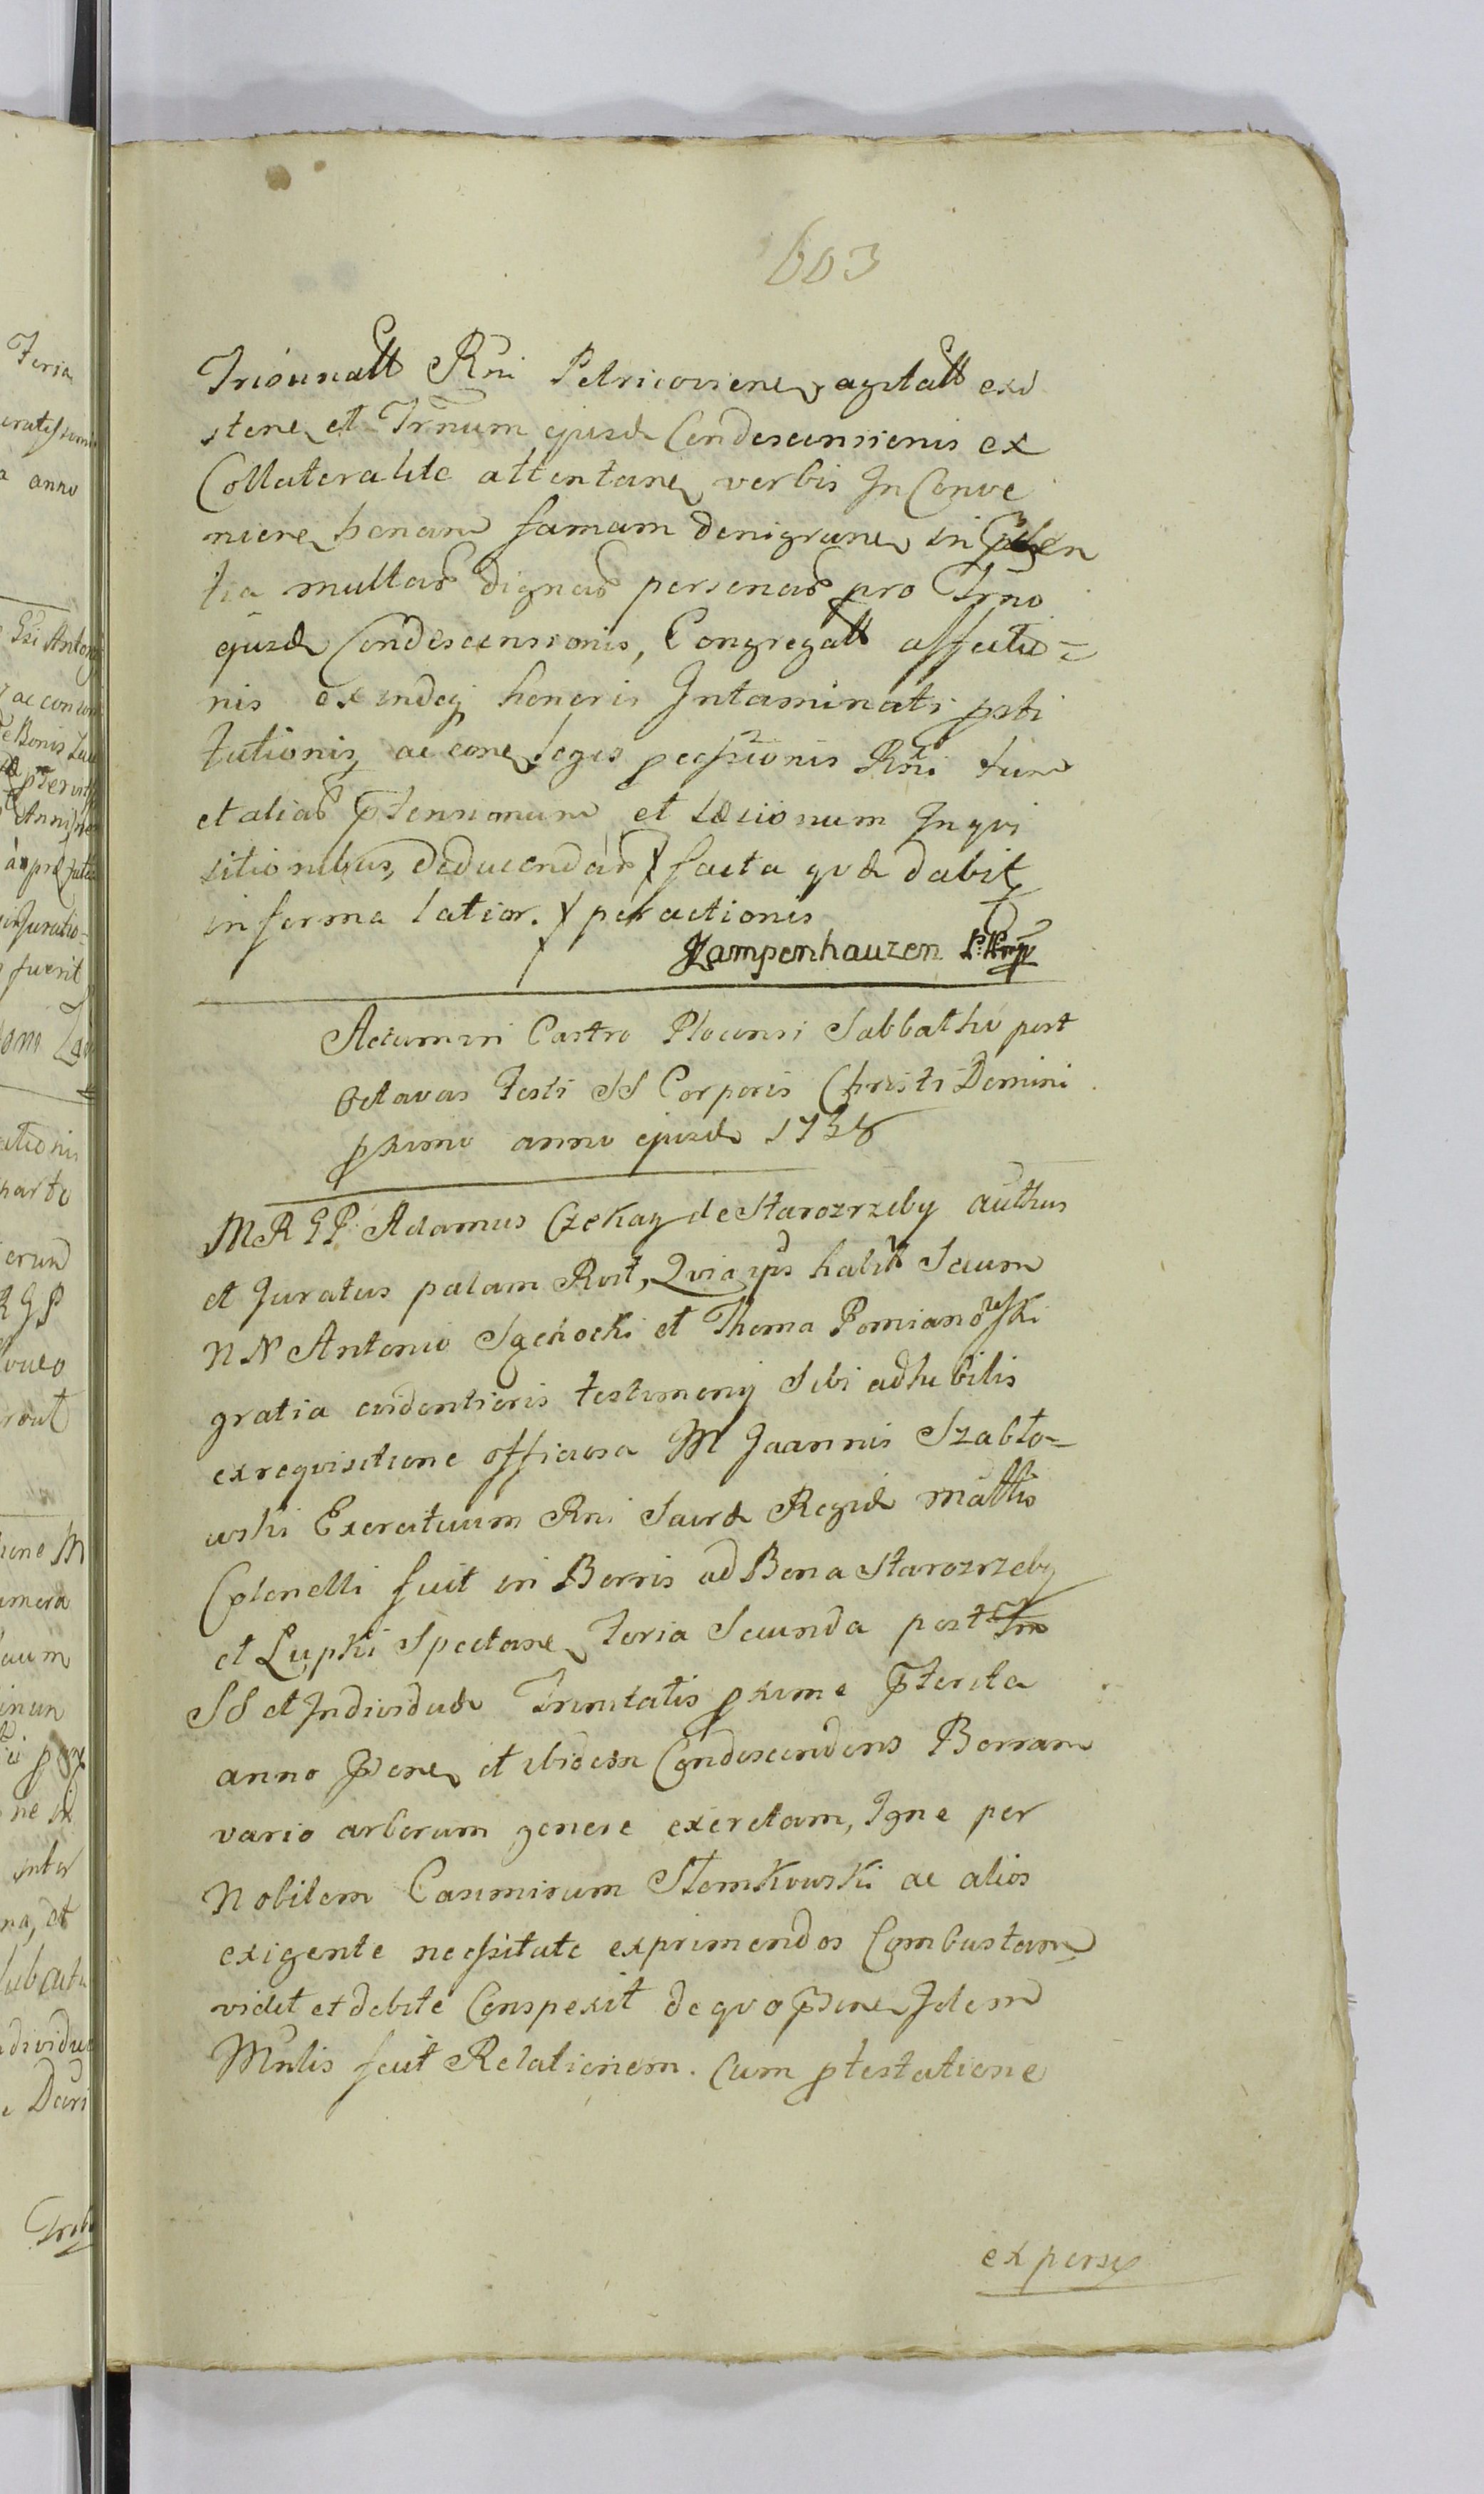 603
Tribunall Rni Petricoviens agitall exi
stens et Trnum ejusd Condescensionis ex
Collateralite attentans verbis In Conve
niens bonam famam denigrans in Pden
tia multas dignas personas pro Trno
ejusd Condescensionis, Congregall affectio=
nis exindeq honoris Intaminati psti
tutionis, ac cons Legis pcessionis Rni tum
et alias ptensionum et Læsionum Inqvi
sitionibus, deducendar facta qvæ dabit
in forma latior. peractionis
Kampenhauzen
Actum in Castro Plocensi Sabbatho post
Octavas Festi SS Corporis Christi Domini
pximo anno ejusd 1738
MRGP Adamus Czekay de Starozrzeby authus
et Juratus palam Rvit, Qvia ips habit Secum
NN Antonio Sąchocki et Thoma Pomianowski
gratia evidentioris testimonij Sibi adhibitis
ex reqvisitione officiosa M Joannis Szabło=
wski Exercituum Rni Sacræ Regiæ Mattis
Colonelli fuit in Borris ad Bona Starozrzeby
et Łupki Spectans Feria Secunda post Fm
SS et Individuæ Trinitatis pxime pterita
anno psens et ibidem Condescendens Borram
vario arborum genere excretam, Igne per
Nobilem Casimirum Słomkowski ac alios
exigente necssitate exprimendos Combustam
vidit et debite Conspexit de qvo psens Idem
Mnlis fecit Relationem. Cum ptestatione
ex persę
Feria
a anno
ac con
fuerit
parte
RGP
inter
Dari